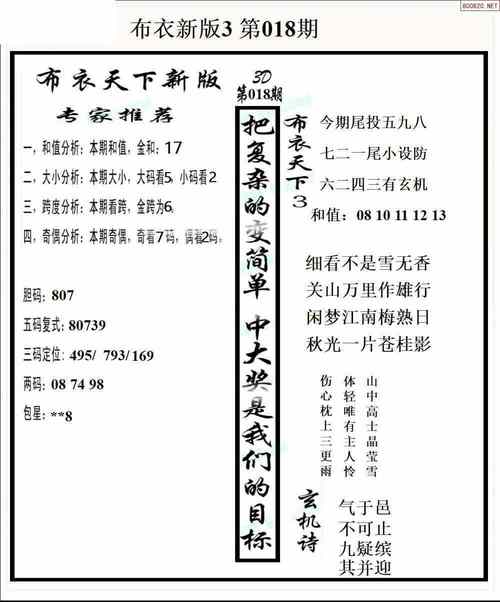 800820.NET
布衣新版3 第018期
布衣天下新版
专家推荐
一，和值分析：本期和值，金和：17
二，大小分析：本期大小，大码看5，小码看2
三，跨度分析：本期看跨，金跨为6，
四，奇偶分析：本期奇偶，奇看7码，偶看2码，
胆码：807
五码复式：80739
三码定位：495/ 793/169
两码：08 74 98
包星：**8
3D
第018期
把复杂的变简单 中大奖是我们的目标
布衣天下3
今期尾投五九八
七二一尾小设防
六二四三有玄机
和值：08 10 11 12 13
细看不是雪无香
关山万里作雄行
闲梦江南梅熟日
秋光一片苍桂影
伤 体 山
心 轻 中
枕 唯 高
上 有 士
三 主 晶
更 人 莹
雨 怜 雪
玄机诗
气于邑
不可止
九疑缤
其并迎